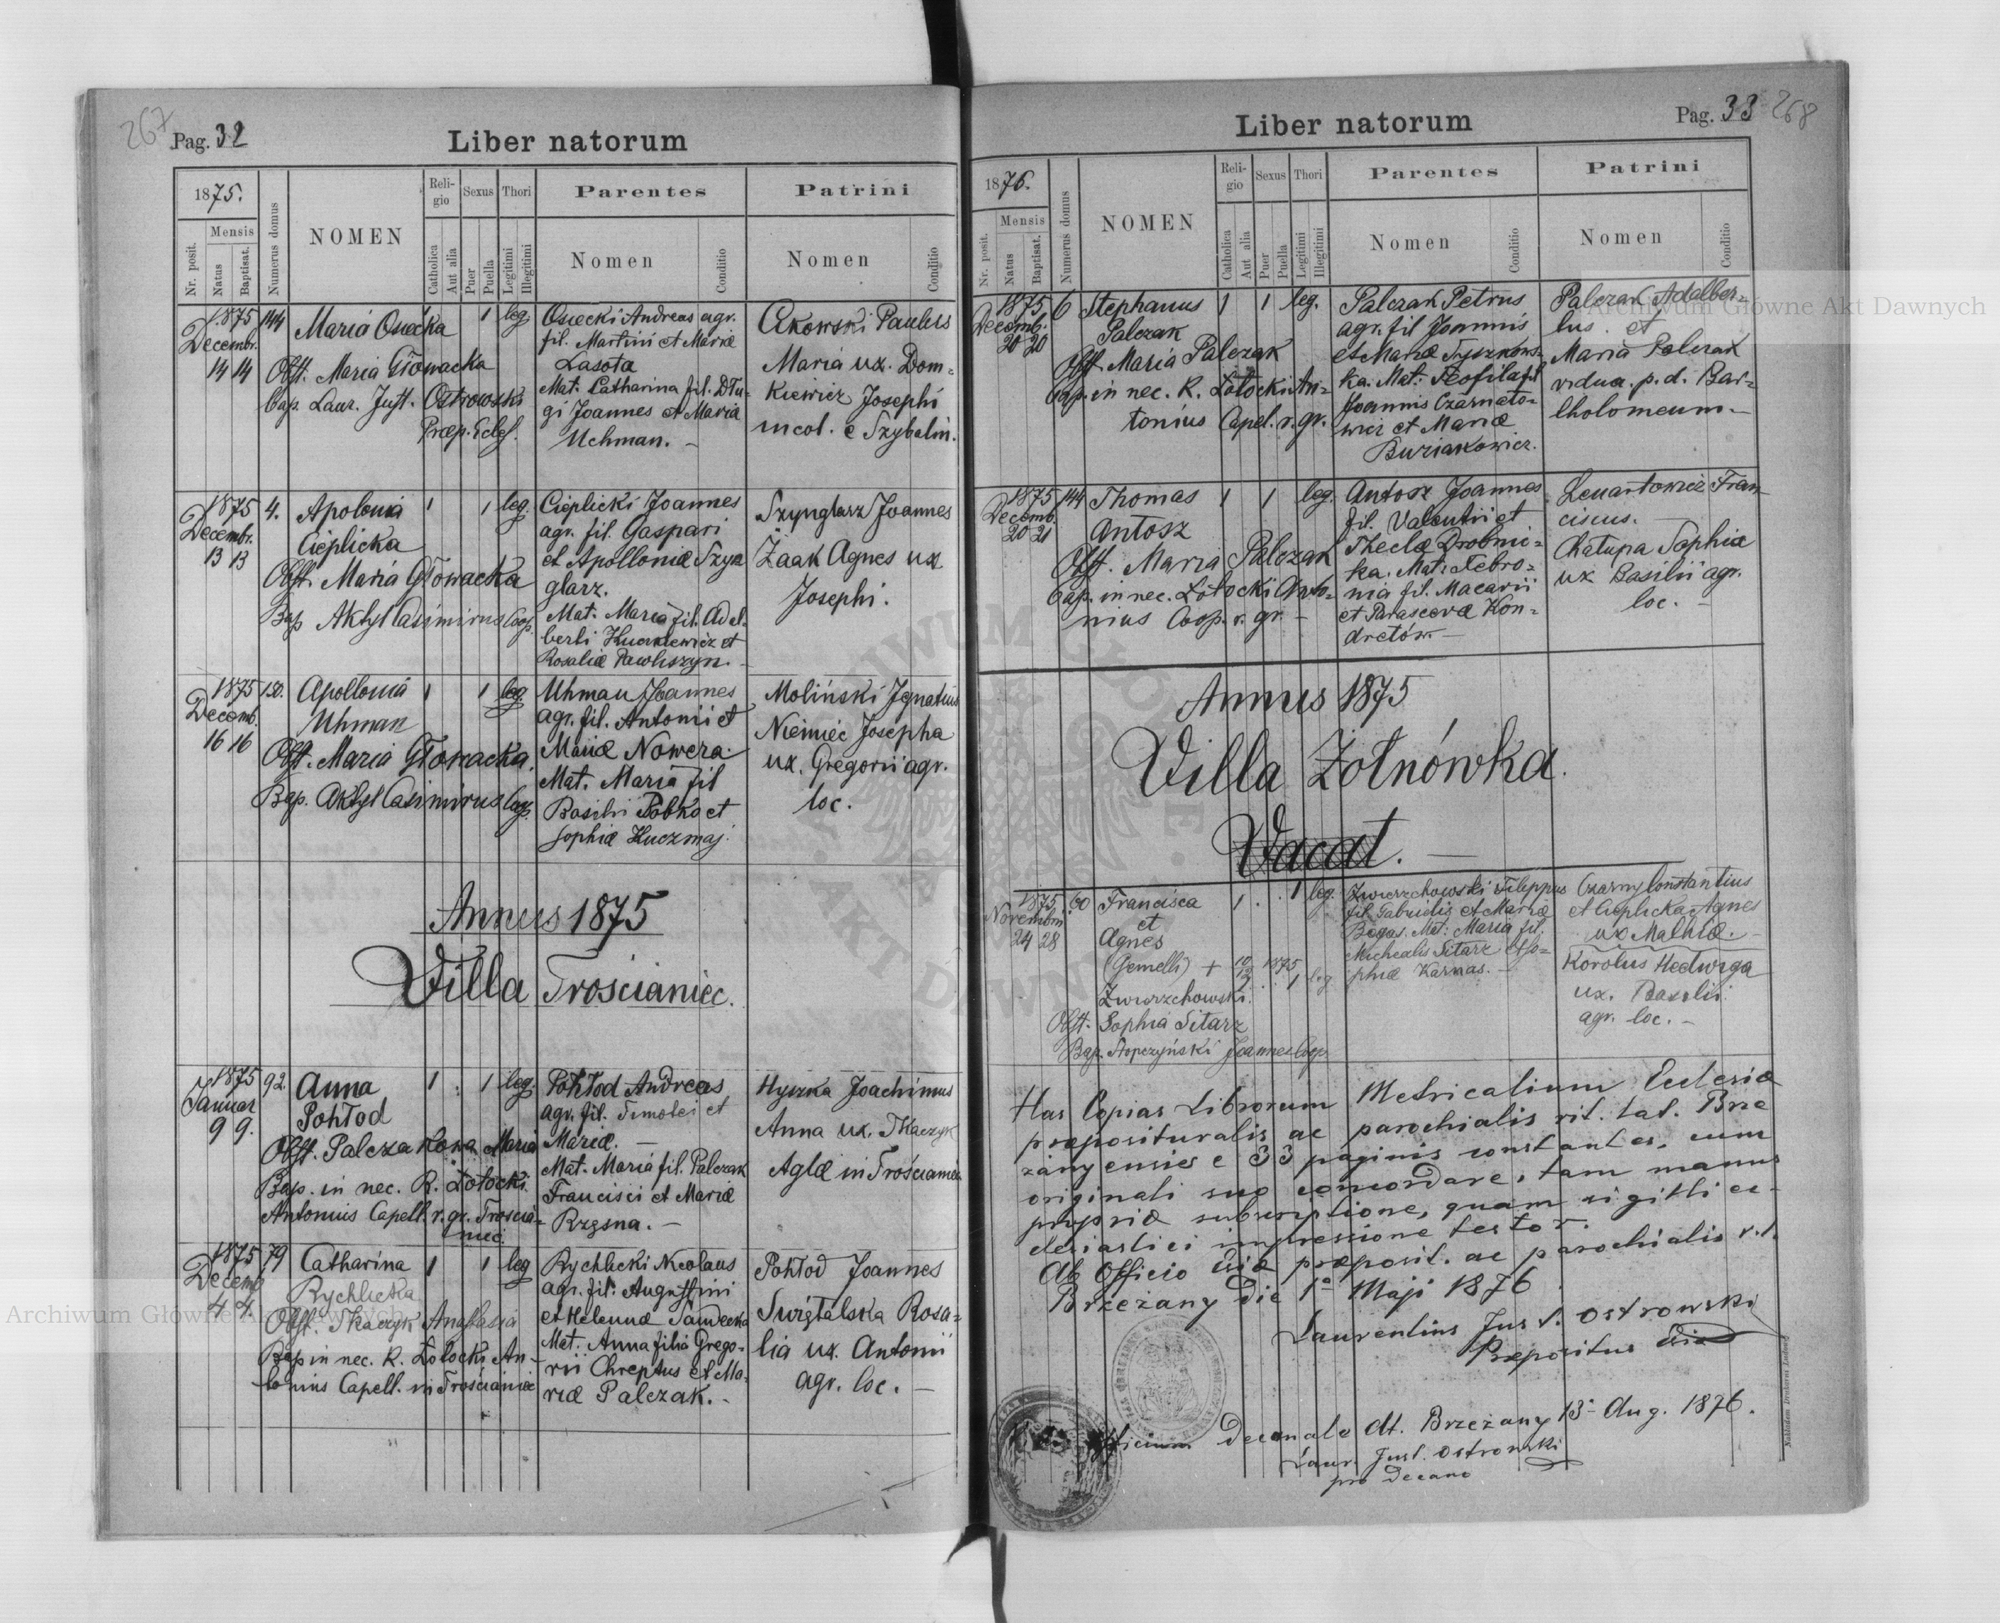 267
Pag. 32
Liber natorum
1875.
Mensis
Nr. posit.
Natus
Baptisat.
Numerus domus
NOMEN
Reli-
gio
Sexus
Thori
Catholica
Aut alia
Puer
Puella
Legitimi
Illegitimi
Parentes
Nomen
Conditio
Patrini
Nomen
Conditio
1875
Decembr.
14 14
144
Maria Osiecka
Obst. Maria Głowacka
bap. Laur. Just. Ostrowski
Præp. Eclej.
1
leg
Osiecki Andreas agr.
fil. Martini et Mariæ
Lasota
Mat. Catharina fil. Dłu-
gi Joannes et Maria
Uchman. -
Cikowski Paulus
Maria ux. Dom-
kiewicz Josephi
incol. e Szybalin.
1875
Decembr.
13 13
4.
Apolonia
Cieplicka
Obst. Maria Głowacka
Bap Aktyl Casimirus Coop.
1
1
leg.
Cieplicki Joannes
agr. fil. Gaspari
et Apolloniæ Szyn
glarz.
Mat. Maria fil. Adal-
berti Kuczkiewicz et
Rosaliæ Pawliszyn. -
Szynglarz Joannes
Żaak Agnes ux
Josephi.
1875
Decemb.
16 16
150.
Apollonia
Uhman
Obst. Maria Głowacka.
Bap. Aktyl Casimirus Coop.
1
1
leg
Uhman Joannes
agr. fil. Antonii et
Mariæ Nowera.
Mat. Maria fil
Basilii Babka et
Sophiæ Kuczmaj.
Moliński Ignatius
Niemiec Josepha
ux. Gregorii agr.
loc.
Annus 1875
Villa Trościaniec.
1875
Januar
9 9.
92.
Anna
Pohłod
Obst. Palczakowa Maria
Bap. in nec. R. Łotocki
Antonius Capell. r. gr. Trościa-
niec.
1
1
leg.
Pohłod Andreas
agr. fil. Timotei et
Mariæ. -
Mat. Maria fil. Palczak
Francisci et Mariæ
Rzęsna. -
Hyszka Joachimus
Anna ux. Tkaczyk
Aglæ in Trościaniec
1875
Decemb
4 4.
79
Catharina
Rychlicka
Obst. Tkaczyk Anastasia
Bap in nec. R. Łotocki An-
tonius Capell. in Trościaniec
1
1
leg
Rychlicki Nicolaus
agr. fil. Augustini
et Helenæ Sandecka
Mat. Anna filia Grego-
rii Chreptus et Ma-
riæ Palczak. -
Pohłod Joannes
Swiętalska Rosa-
lia ux. Antonii
agr. loc. -
Pag. 33
268
Liber natorum
1876.
Mensis
Nr. posit.
Natus
Baptisat.
Numerus domus
NOMEN
Reli-
gio
Sexus
Thori
Catholica
Aut alia
Puer
Puella
Legitimi
Illegitimi
Parentes
Nomen
Conditio
Patrini
Nomen
Conditio
1875
Decemb.
20 20
6
Stephanus
Palczak
Obst. Maria Palczak
bap. in nec. R. Łotocki An-
tonius Capel. r. gr.
1
1
leg.
Palczak Petrus
agr. fil Joannis
et Mariæ Tyszkows-
ka. Mat: Teofila fil
Joannis Czarnoto-
wicz et Mariæ
Buriakowicz.
Palczak Adalber-
tus. et
Maria Palczak
vidua. p. d. Bar-
tholomeum. -
1875
Decemb.
20 21
144
Thomas
Antosz
Obst. Maria Palczak
bap. in nec. Łotocki Anto-
nius Coop. r. gr -
1
1
leg.
Antosz Joannes
fil. Valentii et
Theclæ Drobnic-
ka. Mat: Febro-
nia fil. Macarii
et Parascevæ Kon-
dretów -
Lenartowicz Fran
ciscus.
Chałupa Sophia
ux Basilii agr.
loc. -
Annus 1875
Villa Żołnówka.
Vacat. -
1875.
Novembri
24 28
60
Francisca
et
Agnes
(Gemelli) + 10/12 1875
Zwierzchowski.
Obst. Sophia Sitarz
Bap. Stopczyński Joannes Coop.
1
1
leg.
1
leg
Zwierzchowski Filippus
fil. Gabrielis et Mariæ
Bogas. Mat: Maria fil.
Michealis Sitarz et So-
phiæ Karnas. -
Czarny Constantius
et Cieplicka Agnes
ux Mathiæ. -
Korolus Hedwiga
ux. Basilii.
agr. loc. -
Has Copias Librorum Metricalium Ecclesiæ
præposituralis ac parochialis rit. lat. Brze
żanyensies e 33 paginis constantes, cum
originali suo concordare, tam manus
propriæ subscriptione, quam sigilli ec-
clesiastici impressione testor.
Ab Officio Eccæ præposit. ac parochialis r. l.
Brzeżany Die 1ª Maji 1876
Laurentius Just. Ostrowski
Præpositus
Officium Decanale dt. Brzeżany 13 Aug. 1876.
Laur. Just. Ostrowski
pro Decano
Nakładem Drukarni Ludowej
Archiwum Główne Akt Dawnych
Archiwum Główne Akt Dawnych
ARCHIWUM GŁÓWNE AKT DAWNYCH